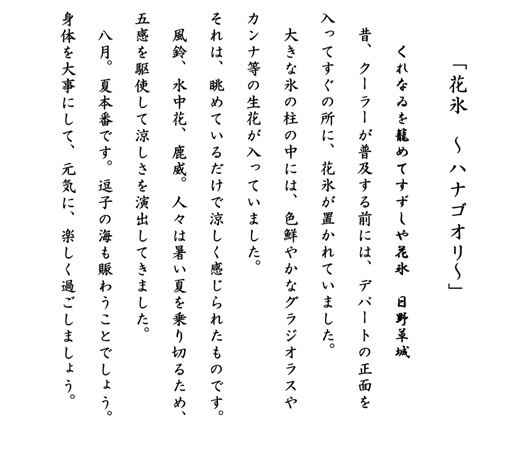 「花氷　～ハナゴオリ～」
くれなゐを籠めてすずしや花氷　日野草城
昔、クーラーが普及する前には、デパートの正面を
入ってすぐの所に、花氷が置かれていました。
大きな氷の柱の中には、色鮮やかなグラジオラスや
カンナ等の生花が入っていました。
それは、眺めているだけで涼しく感じられたものです。
風鈴、水中花、鹿威。人々は暑い夏を乗り切るため、
五感を駆使して涼しさを演出してきました。
八月。夏本番です。逗子の海も賑わうことでしょう。
身体を大事にして、元気に、楽しく過ごしましょう。